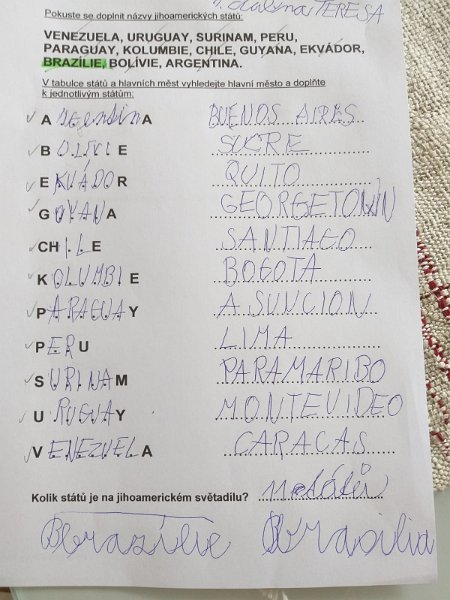 TERESA
Pokuste se doplnit názvy jihoamerických států:
VENEZUELA, URUGUAY, SURINAM, PERU,
PARAGUAY, KOLUMBIE, CHILE, GUYANA, EKVÁDOR,
BRAZÍLIE, BOLÍVIE, ARGENTINA.
V tabulce států a hlavních měst vyhledejte hlavní město a doplňte
k jednotlivým státům:
ArgentinA BUENOS AIRES
BOLIVIE SUCRE
EKVÁDOR QUITO
GUYANA GEORGETOWN
CHILE SANTIAGO
KOLUMBIE BOGOTA
PARAGUAY ASUNCION
PERU LIMA
SURINAM PARAMARIBO
URUGUAY MONTEVIDEO
VENEZUELA CARACAS
Kolik států je na jihoamerickém světadílu? států
Brazílie Brasilia